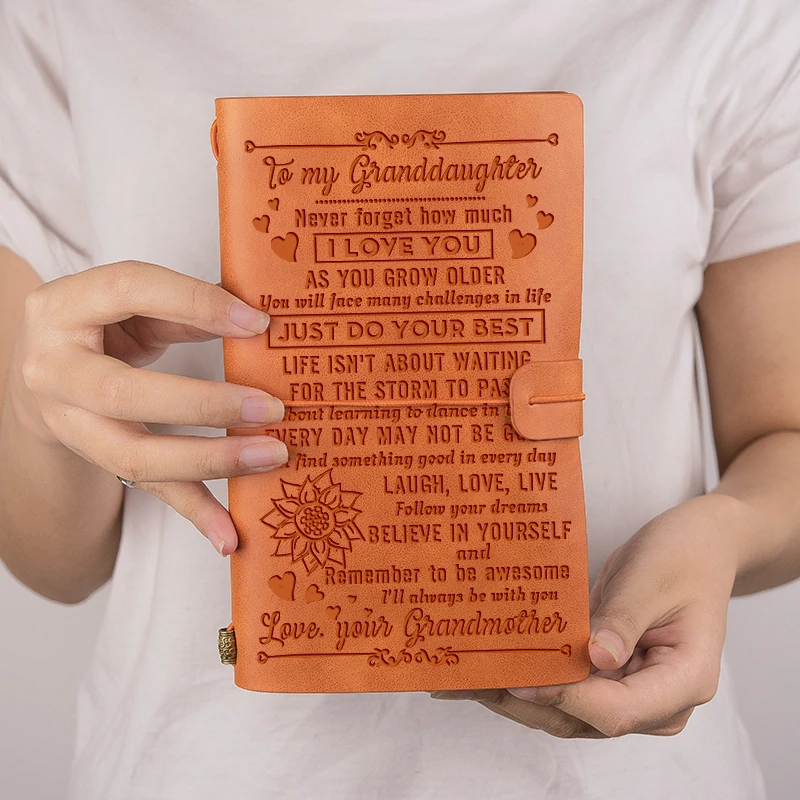 To my Granddaughter
Never forget how much
I LOVE YOU
AS YOU GROW OLDER
You will face many challenges in life
JUST DO YOUR BEST
LIFE ISN'T ABOUT WAITING
FOR THE STORM TO PASS
about learning to dance in
EVERY DAY MAY NOT BE
find something good in every day
LAUGH, LOVE, LIVE
Follow your dreams
BELIEVE IN YOURSELF
and
Remember to be awesome
I'll always be with you
Love, your Grandmother